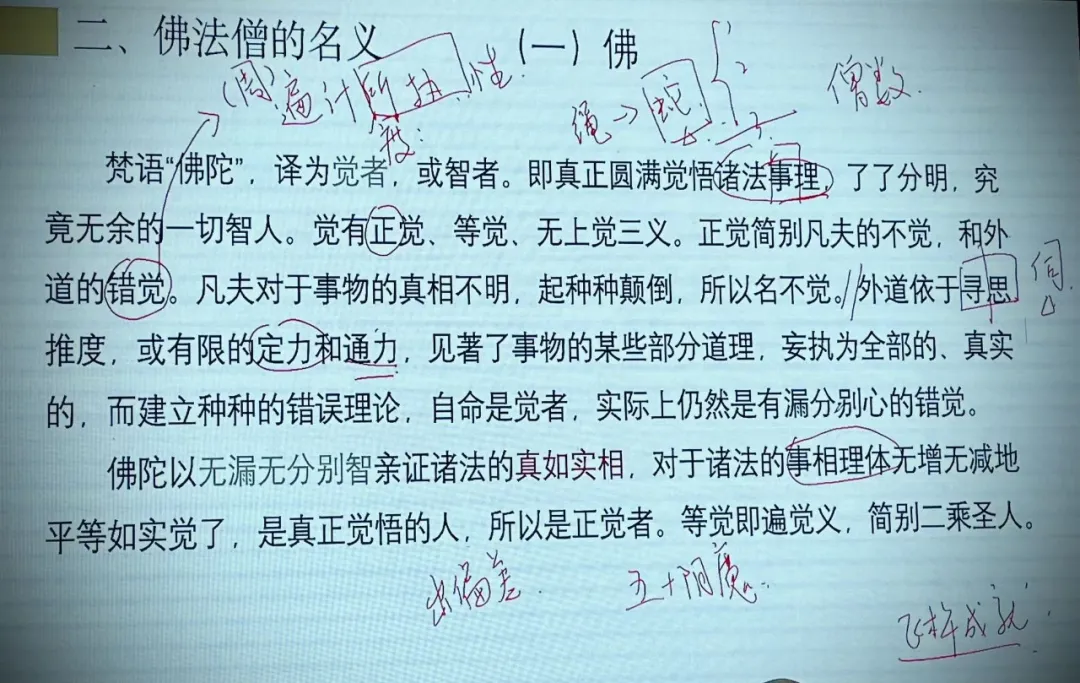 二、佛法僧的名义 （一）佛
(周)遍计所执性
绳→蛇 { 1 2 3
僧数
梵语“佛陀”，译为觉者，或智者。即真正圆满觉悟诸法事理，了了分明，究
竟无余的一切智人。觉有正觉、等觉、无上觉三义。正觉简别凡夫的不觉，和外
道的错觉。凡夫对于事物的真相不明，起种种颠倒，所以名不觉。//外道依于寻思
伺
推度，或有限的定力和通力，见著了事物的某些部分道理，妄执为全部的、真实
的，而建立种种的错误理论，自命是觉者，实际上仍然是有漏分别心的错觉。
佛陀以无漏无分别智亲证诸法的真如实相，对于诸法的事相理体无增无减地
平等如实觉了，是真正觉悟的人，所以是正觉者。等觉即遍觉义，简别二乘圣人。
出偏差.
五十阴魔
成就